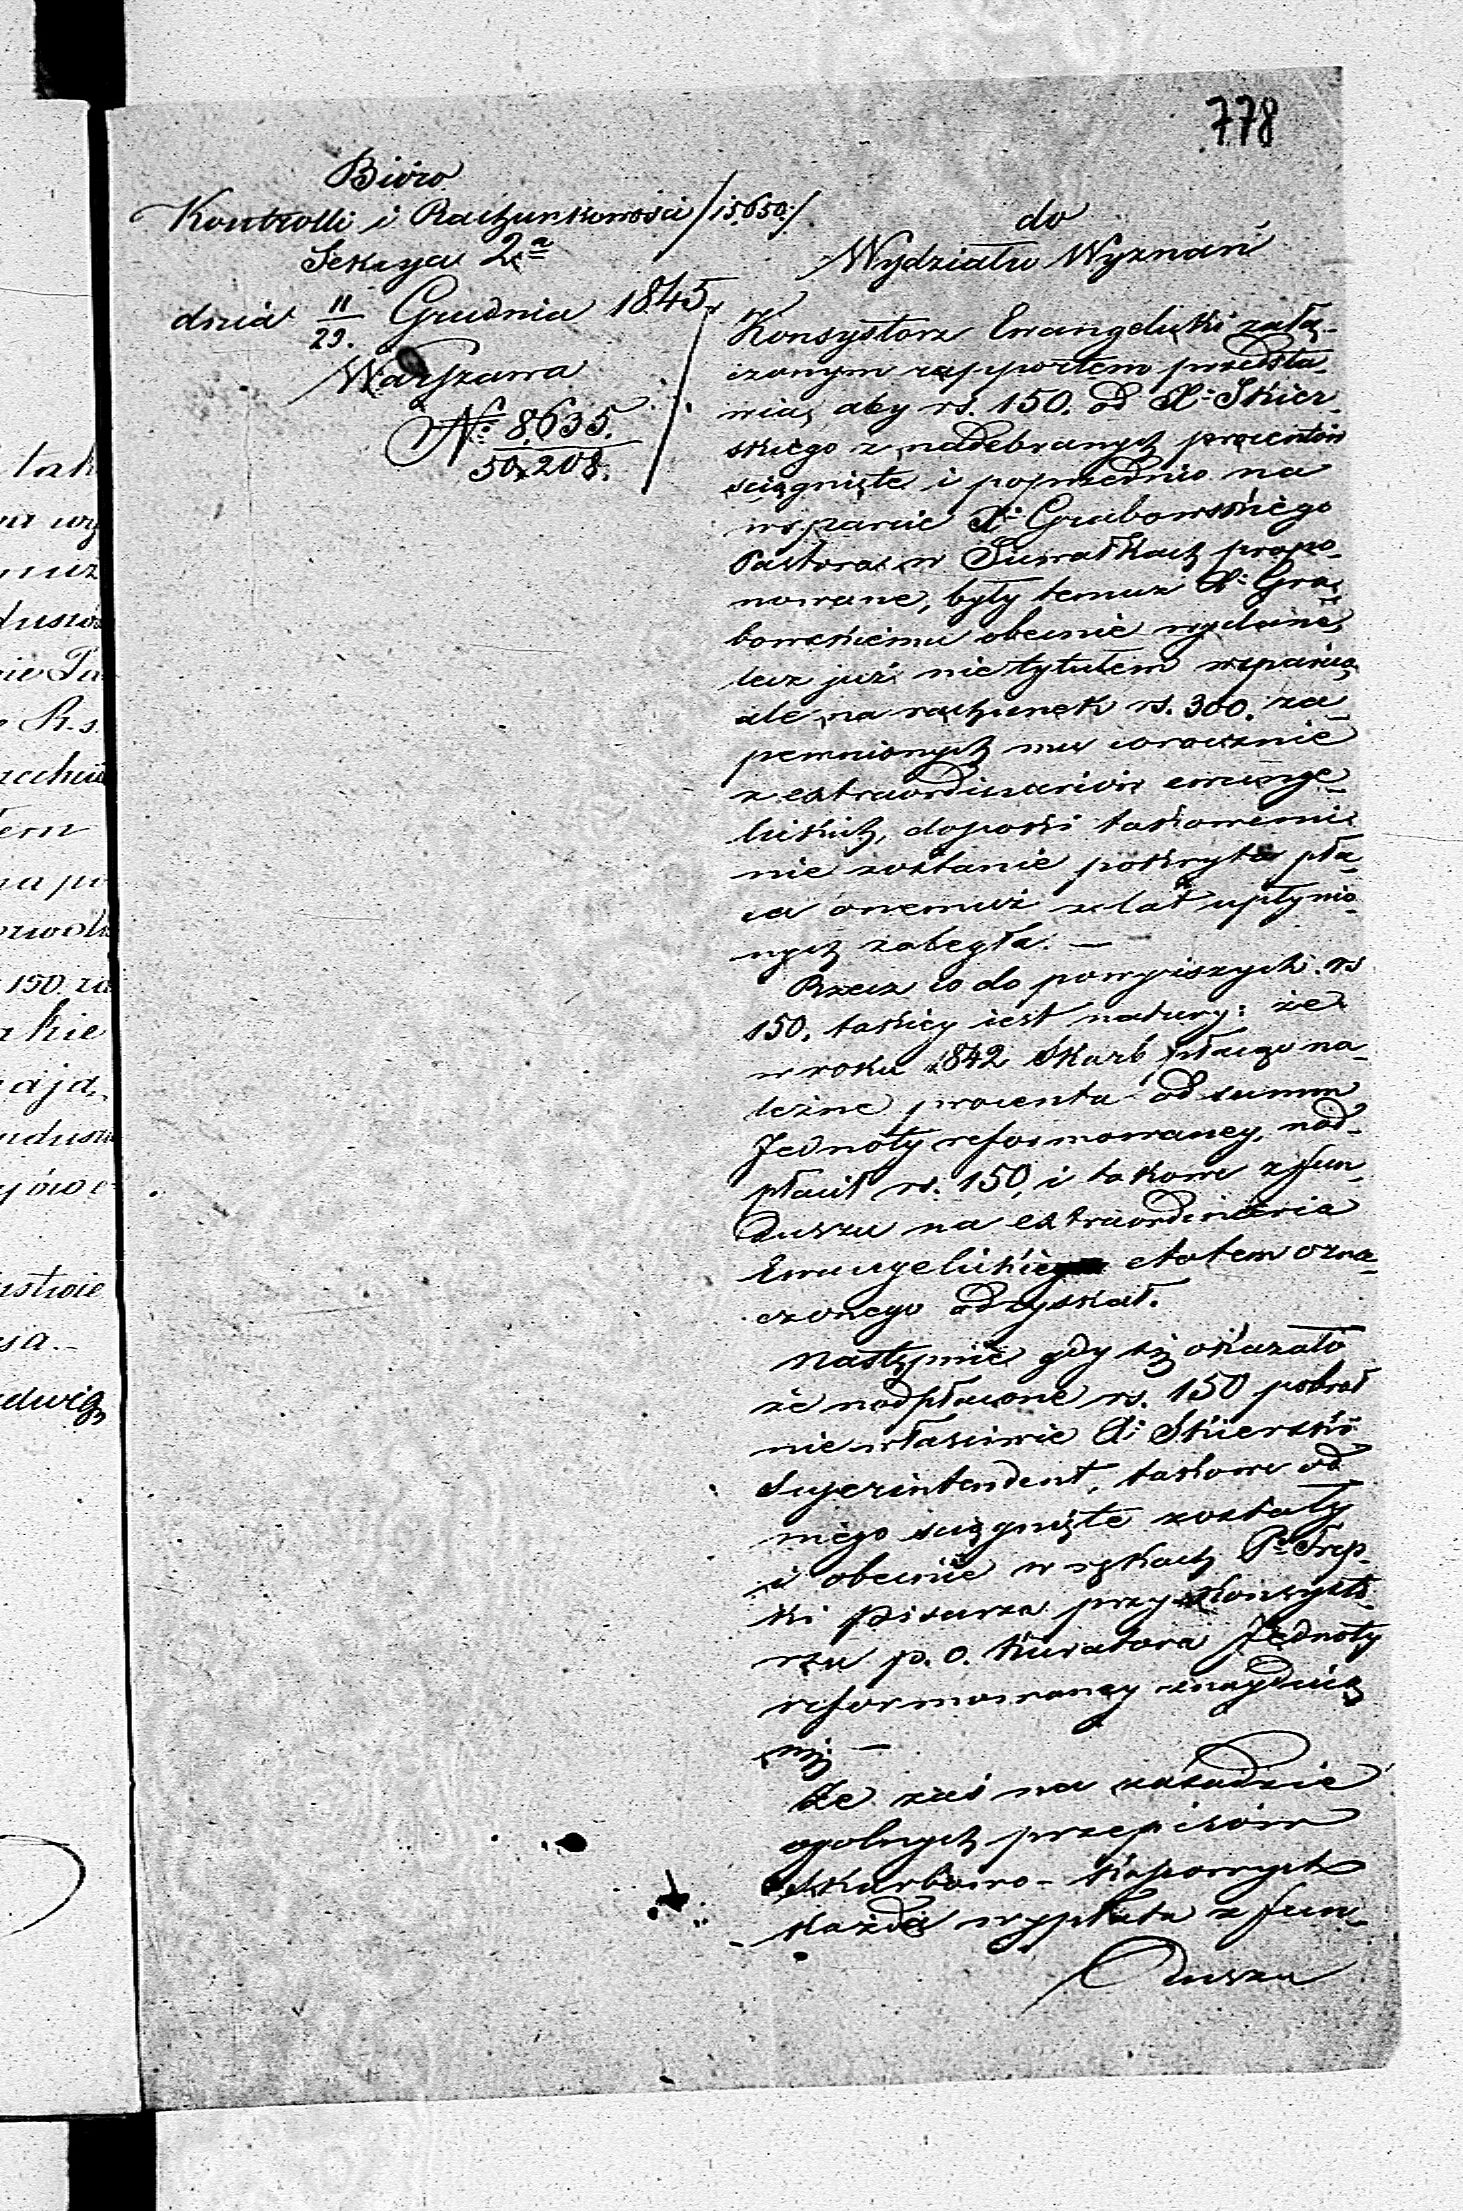 778
Bióro
Kontrolli i Rachunkowości /15,650:/
Sekcya 2ª
dnia 11/23. Grudnia 1845.
Warszawa
Nº 8,635.
50,208.
do
Wydziału Wyznań
Konsystorz Ewangelicki załą-
czonym rapportem przedsta-
wia, aby rs. 150. od X: Skier-
skiego z nadebranych procentów
ściągnięte i poprzednio na
wsparcie X: Grabowskiego
Pastora w Suwałkach propo-
nowane, były temuż X: Gra-
bowskiemu obecnie wydane,
lecz już nie tytułem wsparcia,
ale na rachunek rs. 300. za-
pewnionych mu corocznie
z extraordinariów ewange-
lickich, dopóki takowemi
nie zostanie pokryta pła-
ca onemuż z lat upłynio-
nych zaległa. —
Rzecz co do powyższych rs
150. takiey iest natury: że
w roku 1842 Skarb płacąc na-
leżne procenta od summ
Jednoty reformowaney, nad-
płacił rs. 150, i takowe z fun-
duszu na extraordinaria
Ewangelickie etatem ozna-
czonego odzyskał.
Następnie gdy się okazało
że nadpłacone rs. 150 pobrał
niewłaściwie X: Skierski
Superintendent, takowe od
niego ściągnięte zostały
i obecnie w rękach Pª Trep-
ki Pisarza przy Konsysto-
rzu p. o. Kuratora Jednoty
reformowaney znayduią
się. —
Że zaś na zasadzie
ogolnych przepisów
Skarbowo-Kassowych
każda wypłata z fun-
duszu